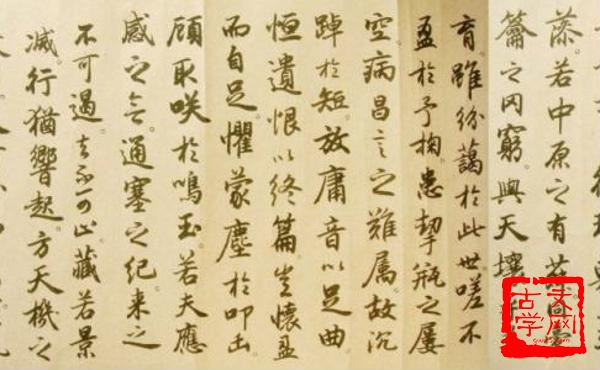 藻。若中原之有
籥之罔窮。與天壤
育。雖紛藹於此世。嗟不
盈於予掬。患挈瓶之屢
空。病昌言之難属。故沉
踔於短放庸音以足曲
恒遺恨以終篇豈懷盈
而自足。懼蒙塵於叩缶
顧取咲於鳴玉若夫應
感之會。通塞之紀。来之
不可遏。去不可止藏若景
滅。行猶響起。方天機之
古文
学网